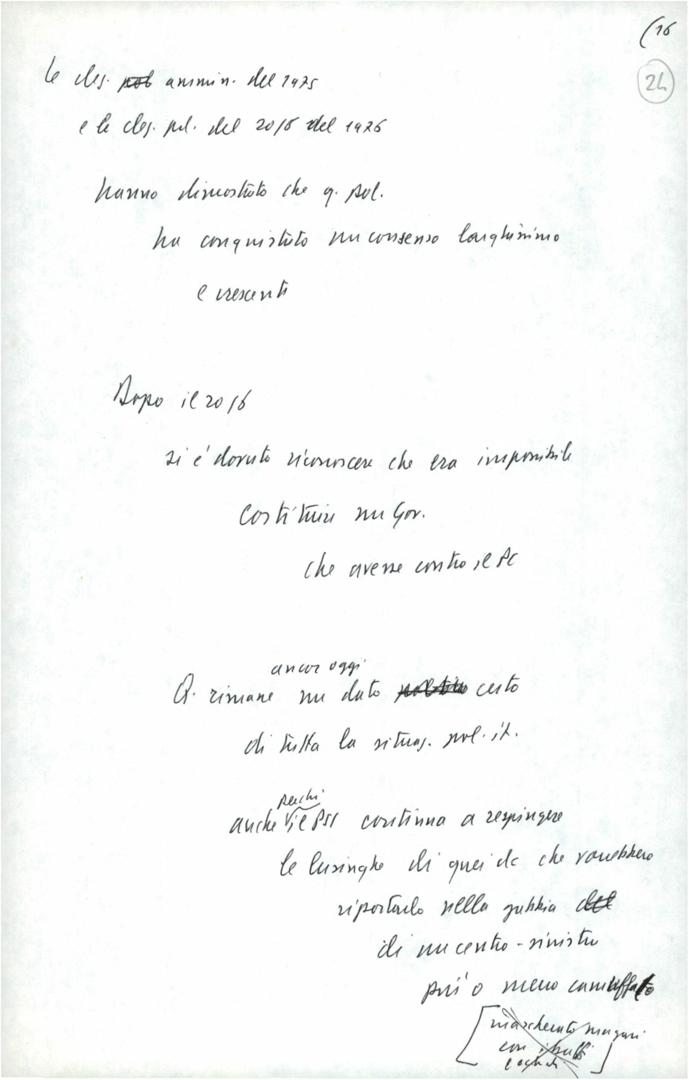 (16
24
le elez. pol ammin. del 1975
e le elez. pol. del 20/6 del 1976
hanno dimostrato che q. pol.
ha conquistato un consenso larghissimo
e crescente
Dopo il 20/6
si è dovuto riconoscere che era impossibile
costituire un Gov.
che avesse contro il PC
ancor oggi
Q. rimane un dato certo
di tutta la situaz. pol. it.
perché
anche il PSI continua a respingere
le lusinghe di quei dc che vorrebbero
riportarlo nella gabbia del
di un centro-sinistra
più o meno camuffato
[mascherato magari
con i baffi
]